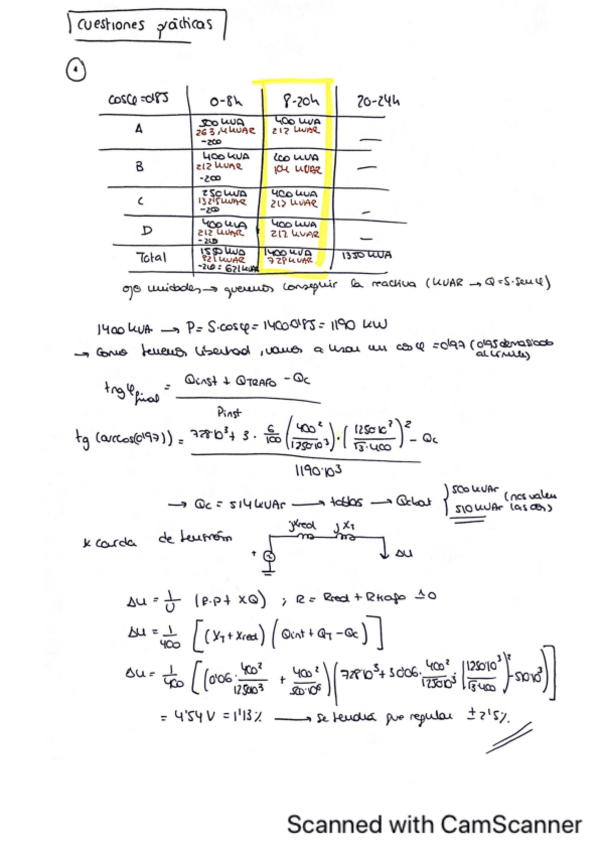 Cuestiones prácticas
1
cosφ=0'85 0-8h 8-20h 20-24h
A 500 kVA 400 kVA —
263,4 kVAR 212 kVAR
-200
B 400 kVA 200 kVA —
212 kVAR 104 kVAR
-200
C 250 kVA 400 kVA —
132'5 kVAR 212 kVAR
-200
D 400 kVA 400 kVA —
212 kVAR 212 kVAR
-200
Total 1550 kVA 1400 kVA 1350 kVA
821 kVAR 728 kVAR
-200 = 621 kVAR
ojo unidades → queremos conseguir la reactiva (kVAR → Q=S·senφ)
1400 kVA → P= S·cosφ = 1400·0'85 = 1190 kW
→ Como tenemos libertad, vamos a usar un cosφ = 0'97 (0'95 demasiado al límite)
tngφfinal = Qinst + QTRAFO - Qc
Pinst
tg (arccos(0'97)) = 728·10³ + 3 · 6/100 (400²/1250·10³) · (1250·10³/√3·400)² - Qc
1190·10³
→ Qc = 514 kVAr → tablas → Qcbat { 500 kVAr (nos valen
510 kVAr las dos)
* caída de tensión jXred jXT
+ ΔU
ΔU = 1/U (R·P + XQ) ; R = Rred + Rtrafo ≃ 0
ΔU = 1/400 [(XT + Xred) (Qint + QT - Qc)]
ΔU = 1/400 [(0'06 · 400²/1250·10³ + 400²/50·10⁶) (728·10³ + 3·0'06 · 400²/1250·10³ (1250·10³/√3·400)² - 510·10³)]
= 4'54 V = 1'13% → se tendrá que regular ± 2'5%
Scanned with CamScanner